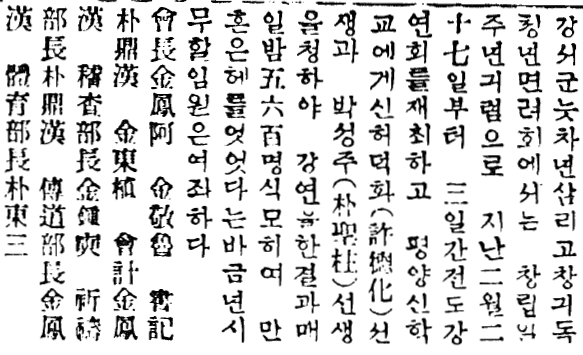 강서군눗차년산리고창긔독
쳥년면려회에서는 창립일
주년긔렴으로 지난二월二
十七일부터 三일간전도강
연회를재최하고 평양신학
교에게신허덕화(許德化)선
생과 박성주(朴聖柱)선생
을청하야 강연을한결과매
일밤五六百명식모히여 만
흔은혜를엇엇다는바금년시
무할임원은여좌하다
會長金鳳阿 金敬魯 書記
朴鼎漢 金東植 會計金鳳
漢 稽査部長金鍾奭 祈禱
部長朴鼎漢 傳道部長金鳳
漢 體育部長朴東三